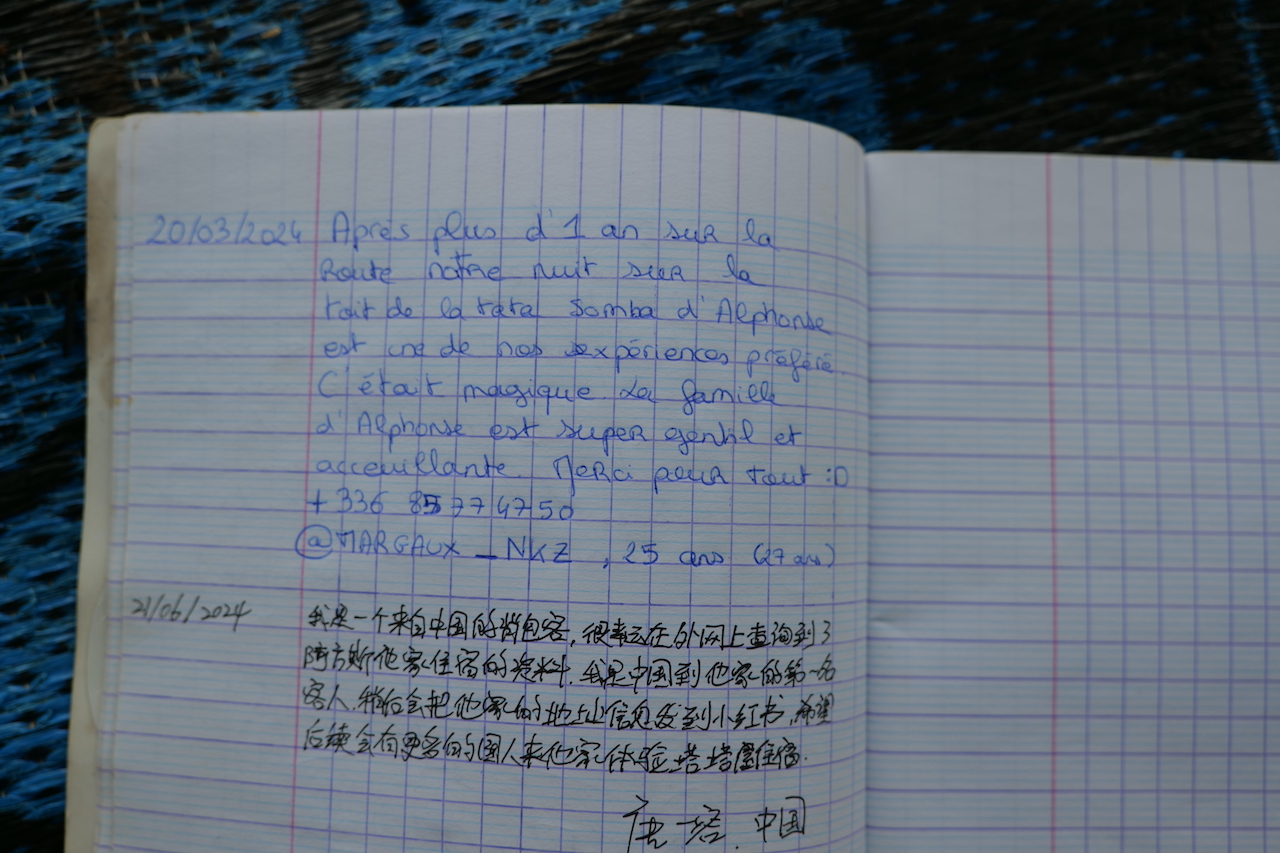 20/03/2024 Après plus d'1 an sur la
Route notre nuit sur la
toit de la tata Somba d'Alphonse
est une de nos expériences préféré.
C'était magique La famille
d'Alphonse est super gentil et
acceuillante. Merci pour tout :D
+336 85774750
@MARGAUX_NKZ, 25 ans (27 ans)
21/06/2024 我是一个来自中国的背包客,很幸运在外网上查询到了
阿方斯他家住宿的资料.我是中国到他家的第一名
客人,稍后会把他家的地址信息发到小红书,希望
后续会有更多的国人来他家体验塔塔屋住宿.
中国